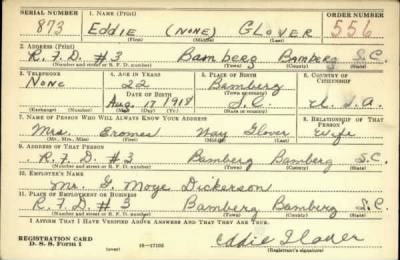 SERIAL NUMBER 1. NAME (Print) ORDER NUMBER
873 EDDIE (NONE) GLOVER 556
(First) (Middle) (Last)
2. ADDRESS (Print)
R.F.D. #3 Bamberg Bamberg S.C.
(Number and street or R. F. D. number) (Town) (County) (State)
3. TELEPHONE 4. AGE IN YEARS 5. PLACE OF BIRTH 6. COUNTRY OF CITIZENSHIP
None 22 Bamberg
DATE OF BIRTH (Town or county)
Aug. 17 1918 S.C. U.S.A.
(Exchange) (Number) (Mo.) (Day) (Yr.) (State or country)
7. NAME OF PERSON WHO WILL ALWAYS KNOW YOUR ADDRESS 8. RELATIONSHIP OF THAT PERSON
Mrs. Eromes Way Glover Wife
(Mr., Mrs., Miss) (First) (Middle) (Last)
9. ADDRESS OF THAT PERSON
R.F.D. #3 Bamberg Bamberg S.C.
(Number and street or R. F. D. number) (Town) (County) (State)
10. EMPLOYER'S NAME
Mr. G. Moye Dickerson
11. PLACE OF EMPLOYMENT OR BUSINESS
R.F.D. #3 Bamberg Bamberg S.C.
(Number and street or R. F. D. number) (Town) (County) (State)
I AFFIRM THAT I HAVE VERIFIED ABOVE ANSWERS AND THAT THEY ARE TRUE.
REGISTRATION CARD
D. S. S. Form 1 (over) 16—17105 Eddie Glover
(Registrant's signature)